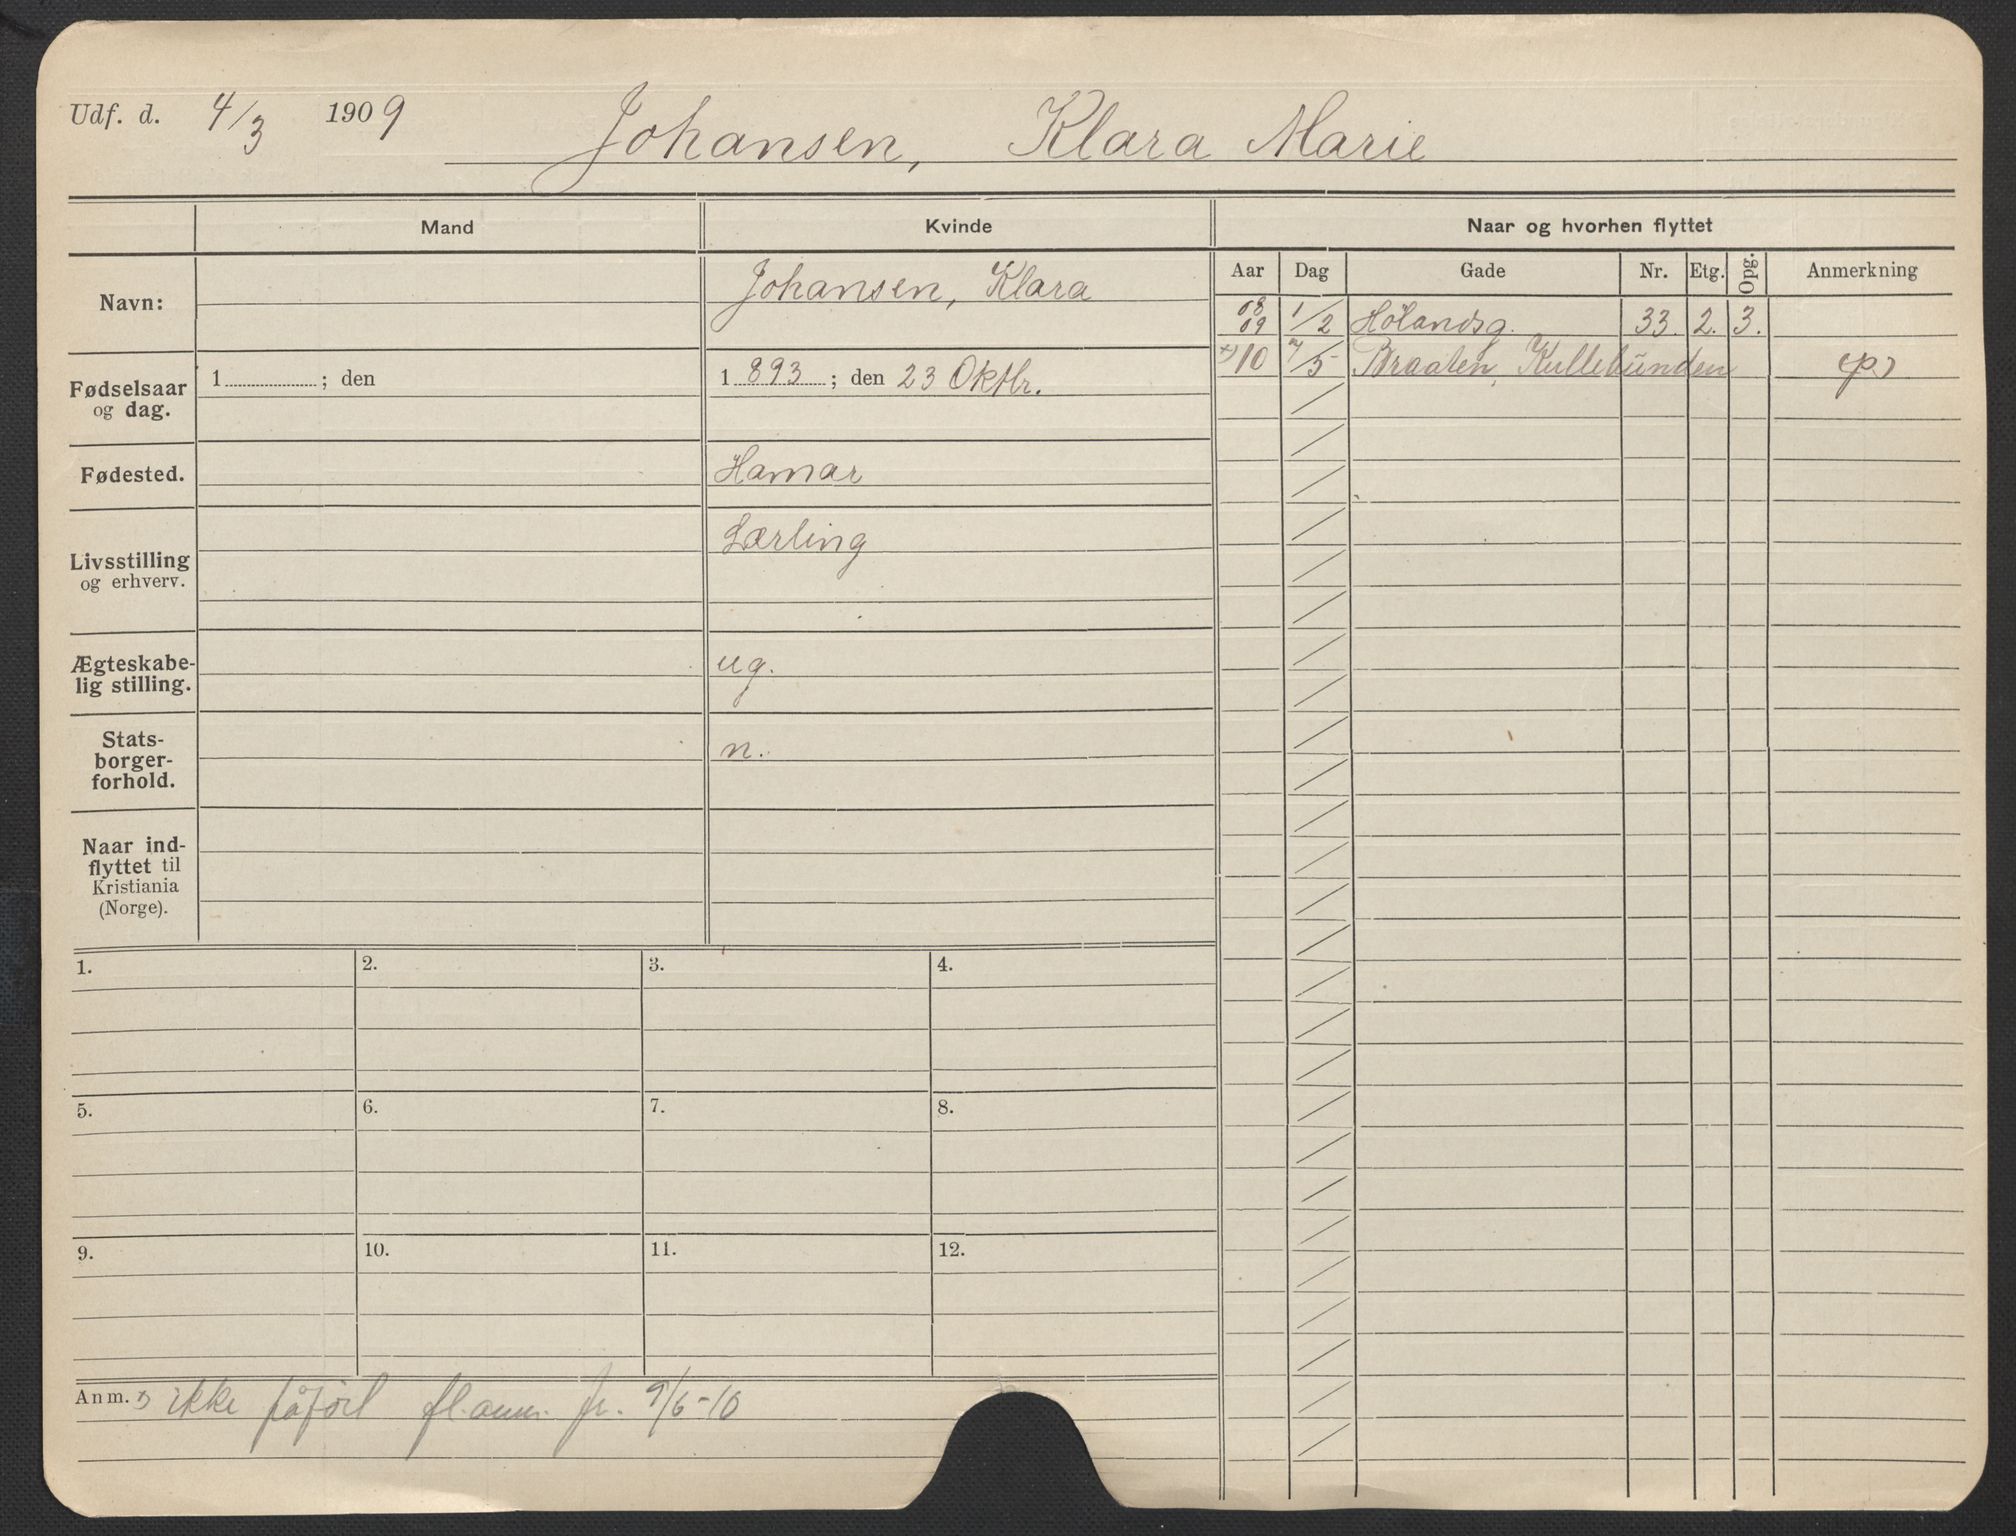 Udf. d. 4/3 1909 Johansen, Klara Marie
Mand Kvinde Naar og hvorhen flyttet
Aar Dag Gade Nr. Etg. Opg. Anmerkning
Navn: Johansen, Klara
08
09 1/2 Hölandsg. 33. 2. 3.
x) 10 7/5 Braaten, Kullebunden
Fødselsaar
og dag.
1 ; den
1 893 ; den 23 Oktbr.
Fødested. Hamar
Livsstilling
og erhverv.
Lærling
Ægteskabe-
lig stilling.
ug.
Stats-
borger-
forhold.
n.
Naar ind-
flyttet til
Kristiania
(Norge).
1. 2. 3. 4.
5. 6. 7. 8.
9. 10. 11. 12.
Anm. x) ikke påført fl. anm. fr. 9/6-10